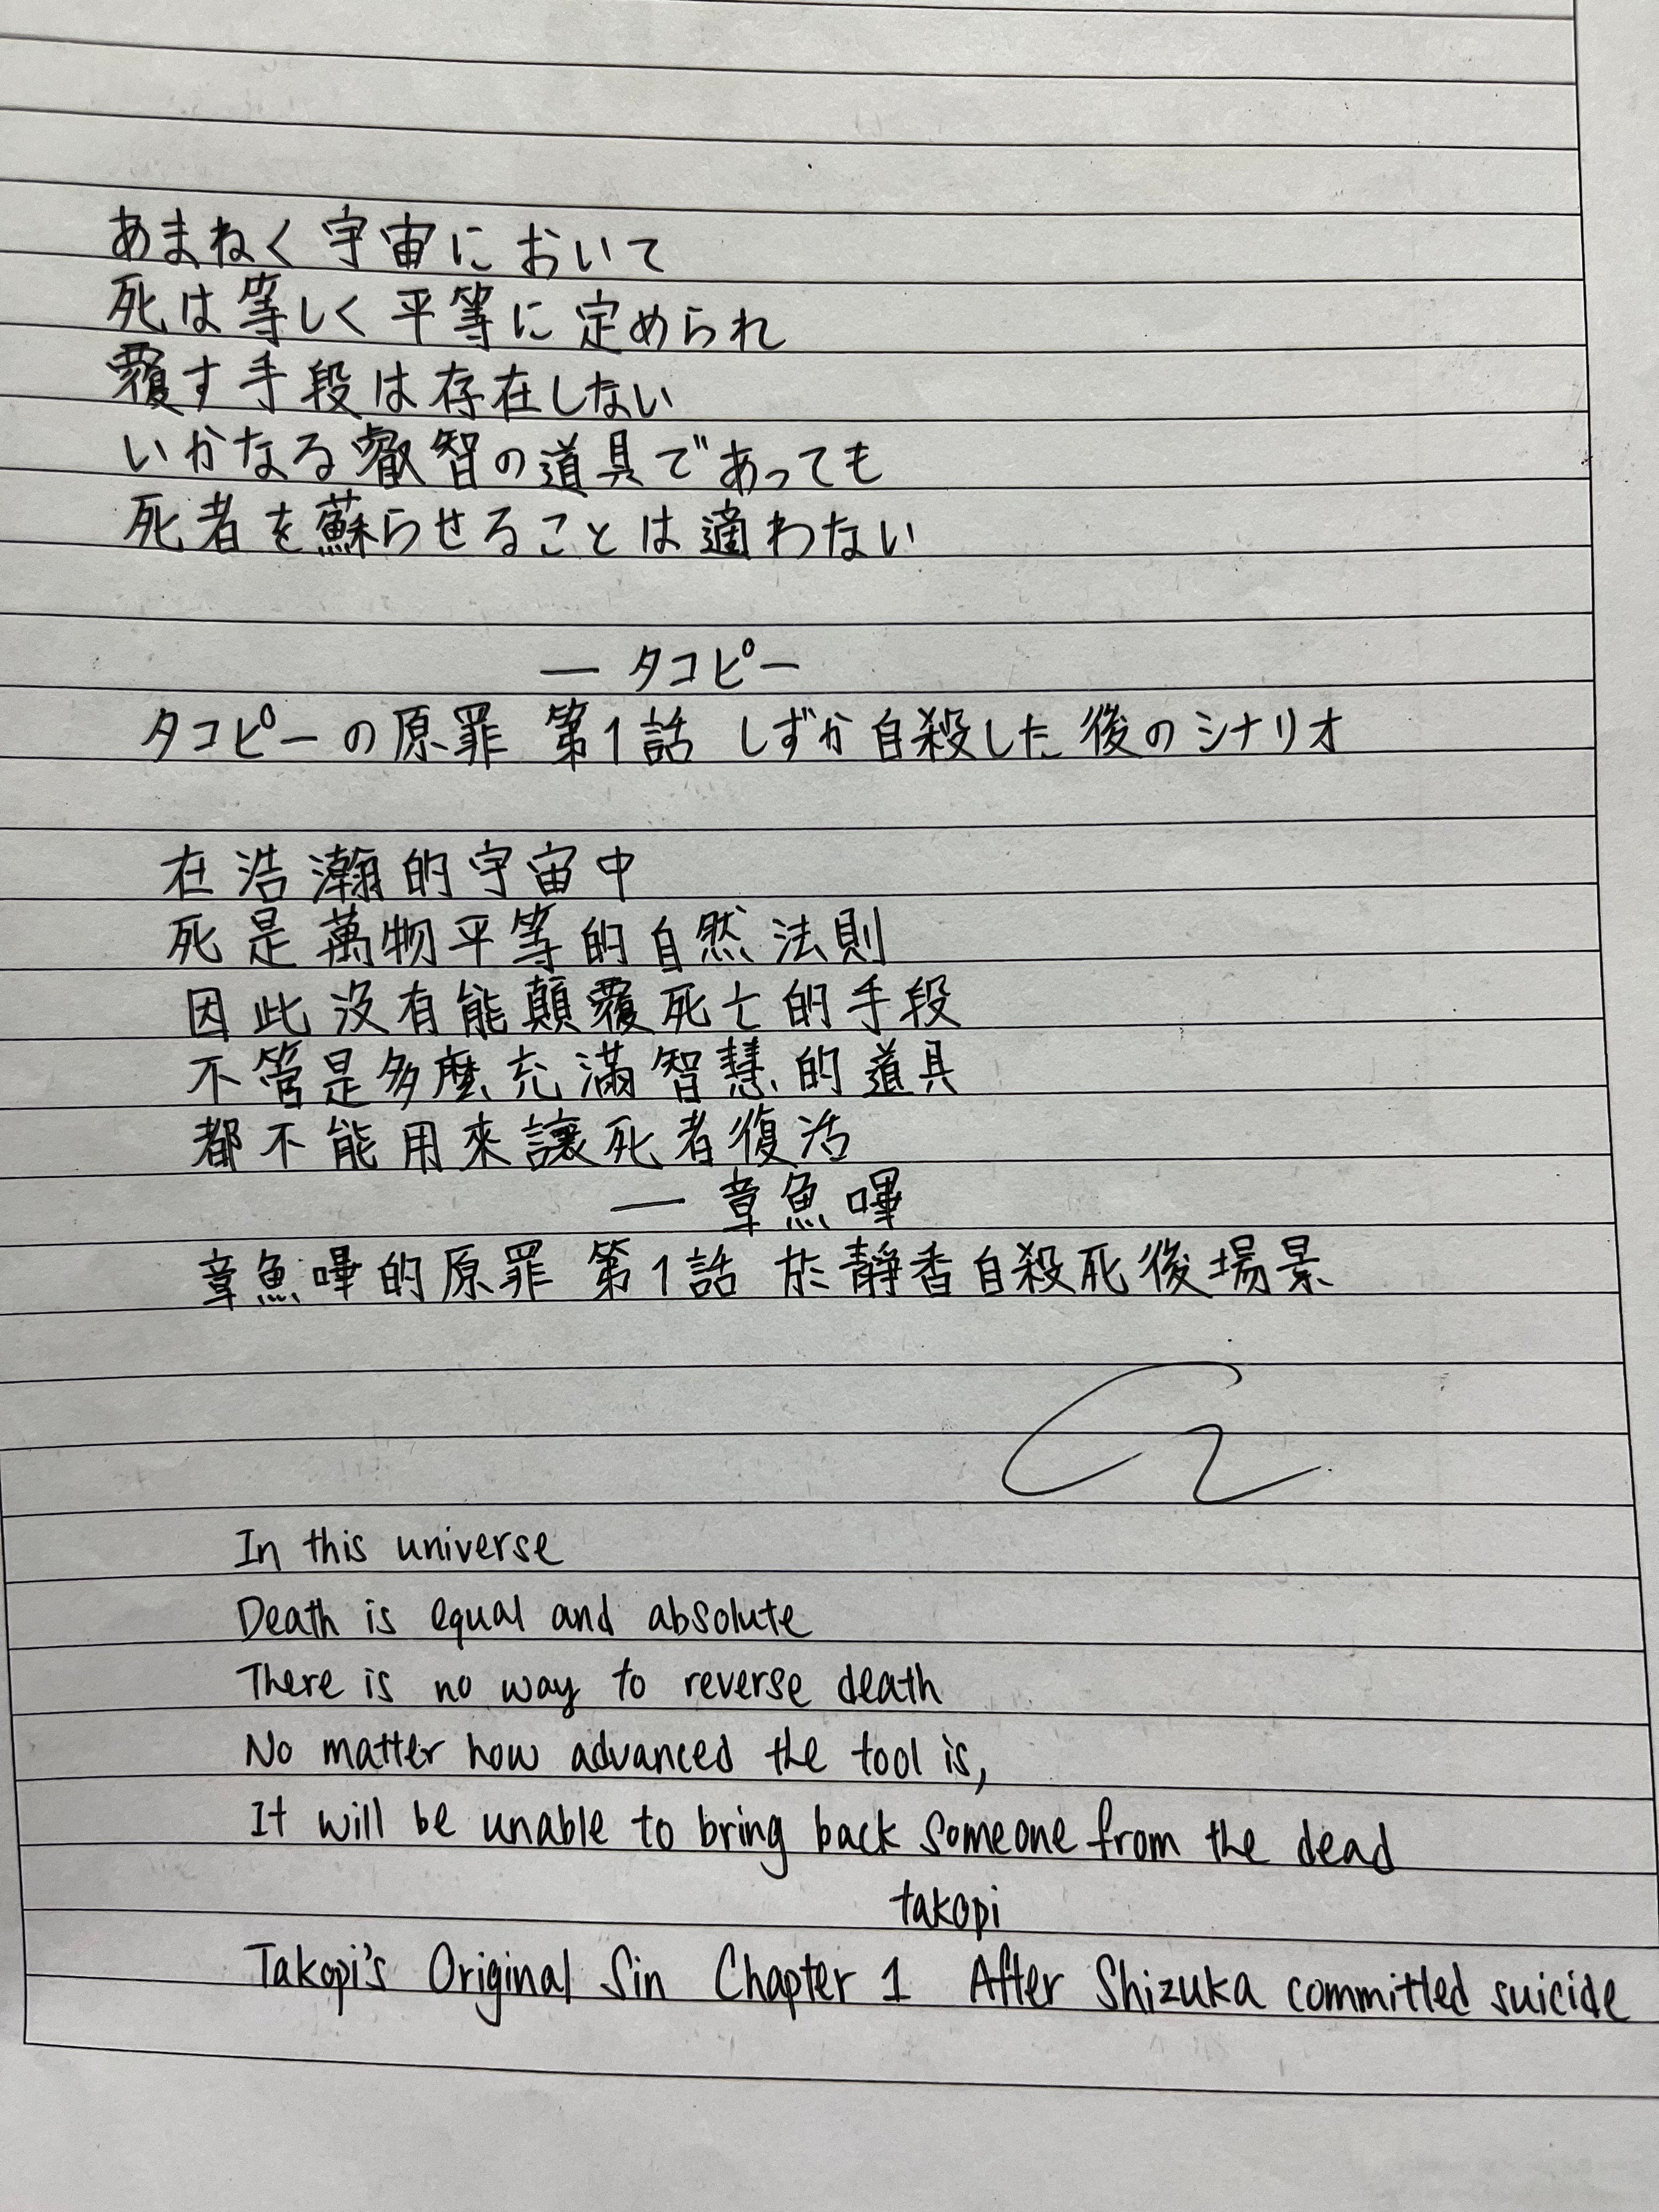 あまねく宇宙において
死は等しく平等に定められ
覆す手段は存在しない
いかなる叡智の道具であっても
死者を蘇らせることは適わない
— タコピー
タコピーの原罪 第1話 しずか自殺した後のシナリオ
在浩瀚的宇宙中
死是萬物平等的自然法則
因此沒有能顛覆死亡的手段
不管是多麼充滿智慧的道具
都不能用來讓死者復活
— 章魚嗶
章魚嗶的原罪 第1話 於靜香自殺死後場景
In this universe
Death is equal and absolute
There is no way to reverse death
No matter how advanced the tool is,
It will be unable to bring back someone from the dead
takopi
Takopi's Original Sin Chapter 1 After Shizuka committed suicide